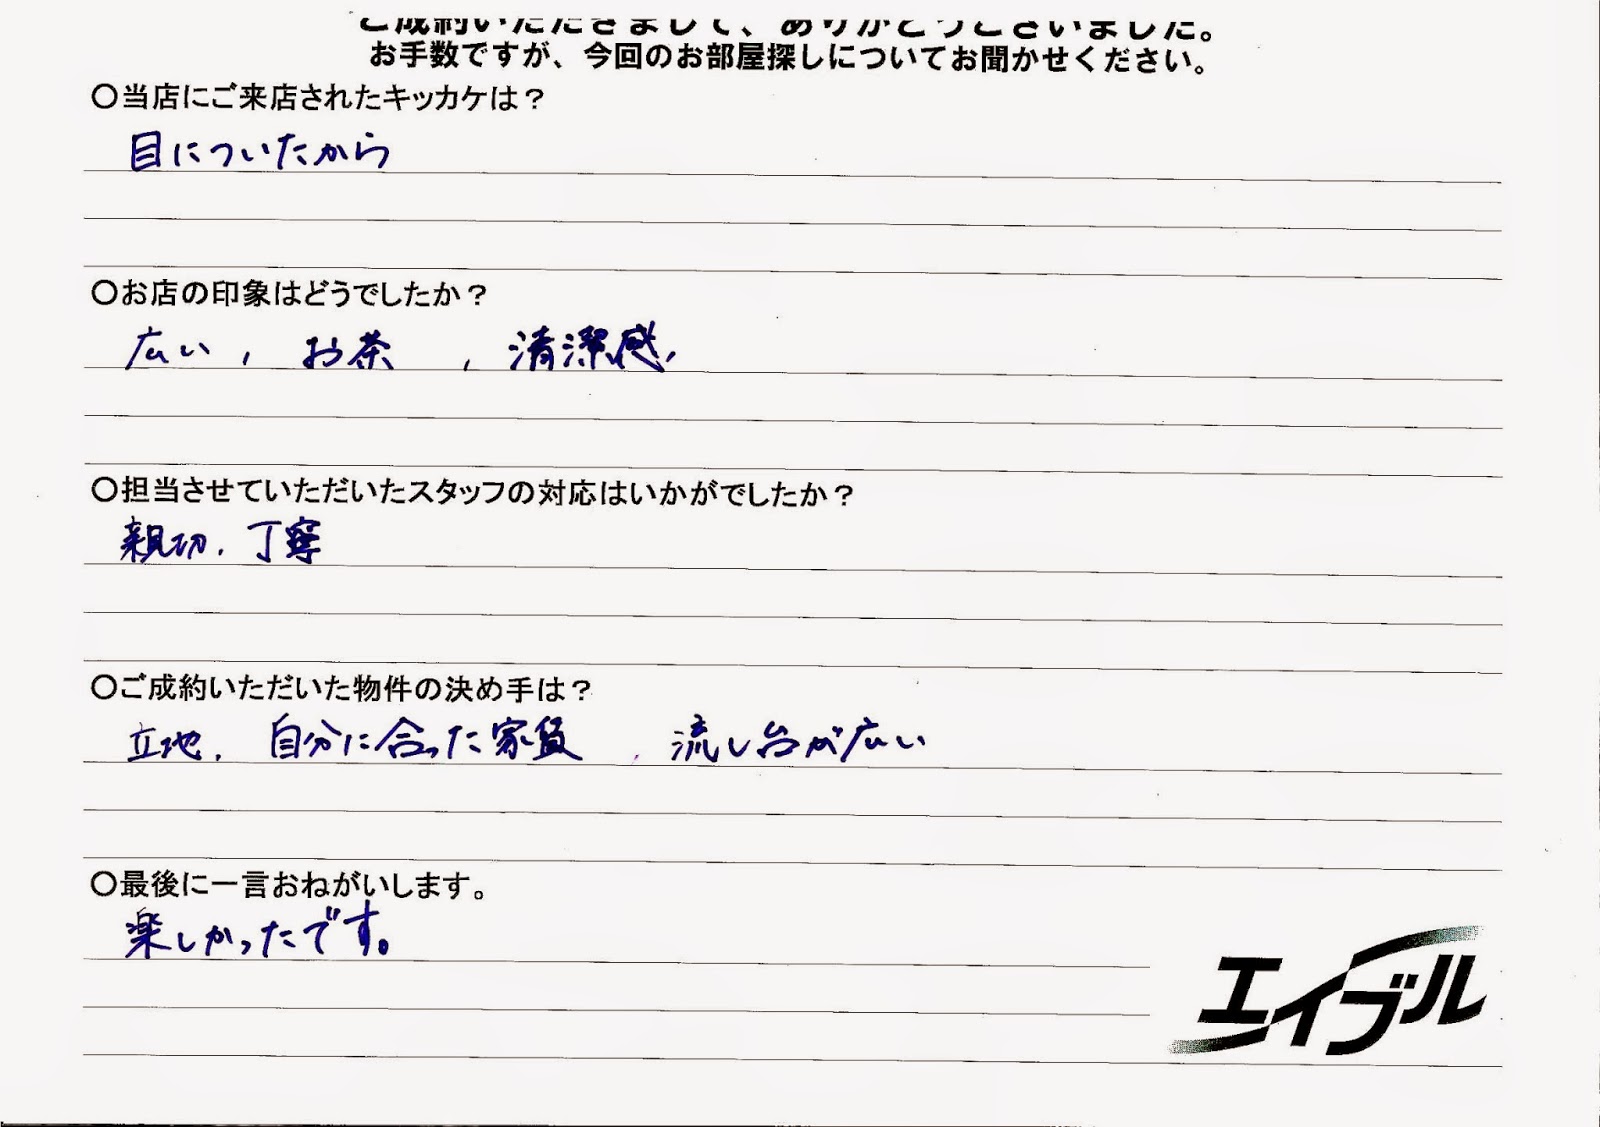 ご成約いただきまして、ありがとうございました。
お手数ですが、今回のお部屋探しについてお聞かせください。
〇当店にご来店されたキッカケは？
目についたから
〇お店の印象はどうでしたか？
広い, お茶, 清潔感,
〇担当させていただいたスタッフの対応はいかがでしたか？
親切, 丁寧
〇ご成約いただいた物件の決め手は？
立地, 自分に合った家賃, 流し台が広い
〇最後に一言おねがいします。
楽しかったです。
エイブル